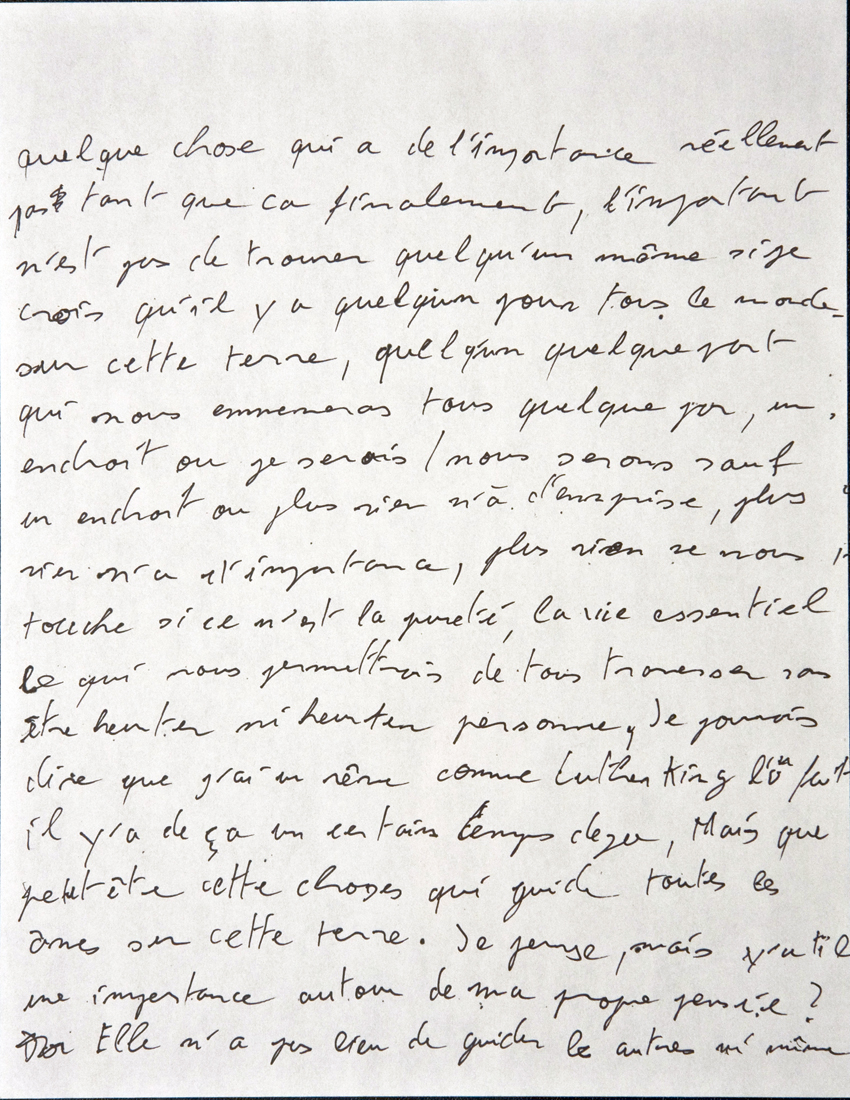 quelque chose qui a de l'importance réellement
pas tant que ca finalement, l'important
n'est pas de trouver quelqu'un même si je
crois qu'il y a quelqu'un pour tous le monde
sur cette terre, quelqu'un quelque part
qui nous emmeneras tous quelque par, un
endroit ou je serais / nous serons sauf
un endroit ou plus rien n'à d'emprise, plus
rien n'a d'importance, plus rien ne nous
touche si ce n'est la pureté, la vie essentiel
Ce qui nous permettrais de tous traverser sans
être heurter ni heurter personne, Je pourrais
dire que j'ai un rêve comme Luther King l'a fait
il y'a de ça un certains temps deja, Mais que
peut être cette choses qui guide toutes les
âmes sur cette terre. Je pense, mais y'a til
une importance autour de ma propre pensée ?
Elle n'a pas lieu de guider les autres ni même